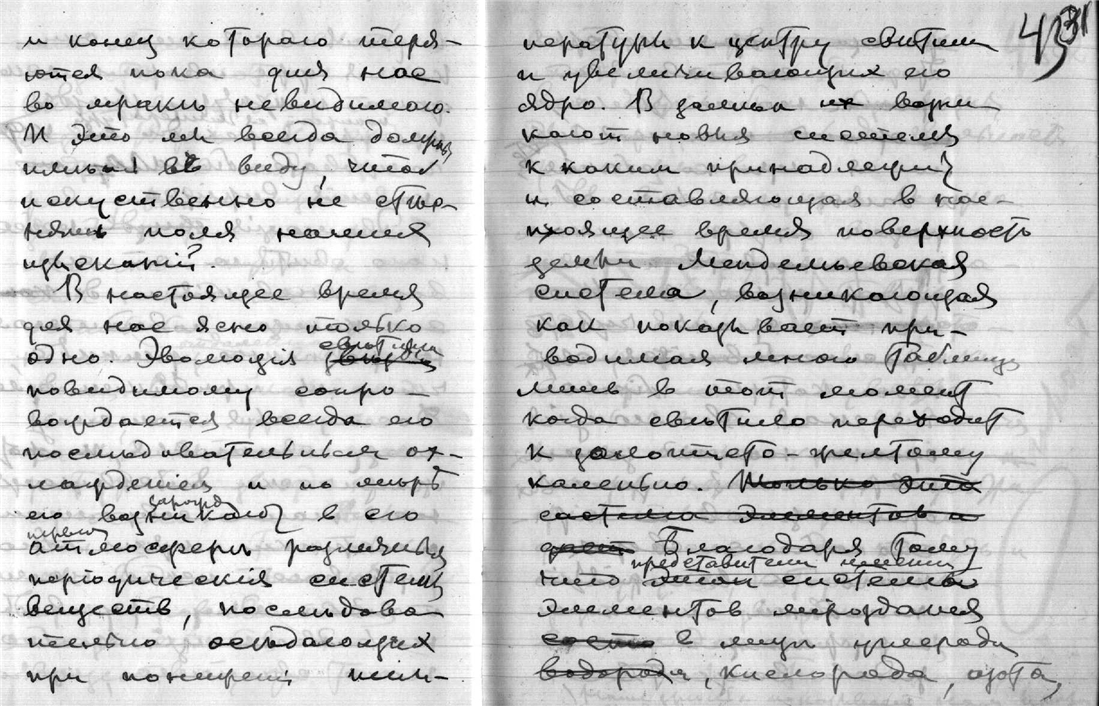 и конец котораго теря-
ются пока для нас
во мраке невидимого.
И это мы всегда должны
иметь в виду, чтоб
искуственно не стес-
нять поля наших
изысканий.
В настоящее время
для нас ясно только
одно Эволюция светила
повидимому сопро-
вождается всегда его
последовательным ох-
лаждением и по мере
его возникают в его
атмосфере различныя
периодическия системы
веществ, последова-
тельно оседающих
при понижении тем-
4331
пературы к центру светила
и увеличивающих его
ядро. В замен их возни
кают новыя системы
к каким принадлежит
и составляющая в нас-
тоящее время поверхность
земли Менделеевская
система, возникающая
как показывает при-
водимая мною таблица
лишь в тот момент
когда светило переходит
к золотисто-желтому
каленью. Только эта
система элементов и
Благодаря тому
представители нашей
что системы
элементов мироздания
в лице углерода
водорода, кислорода, азота,